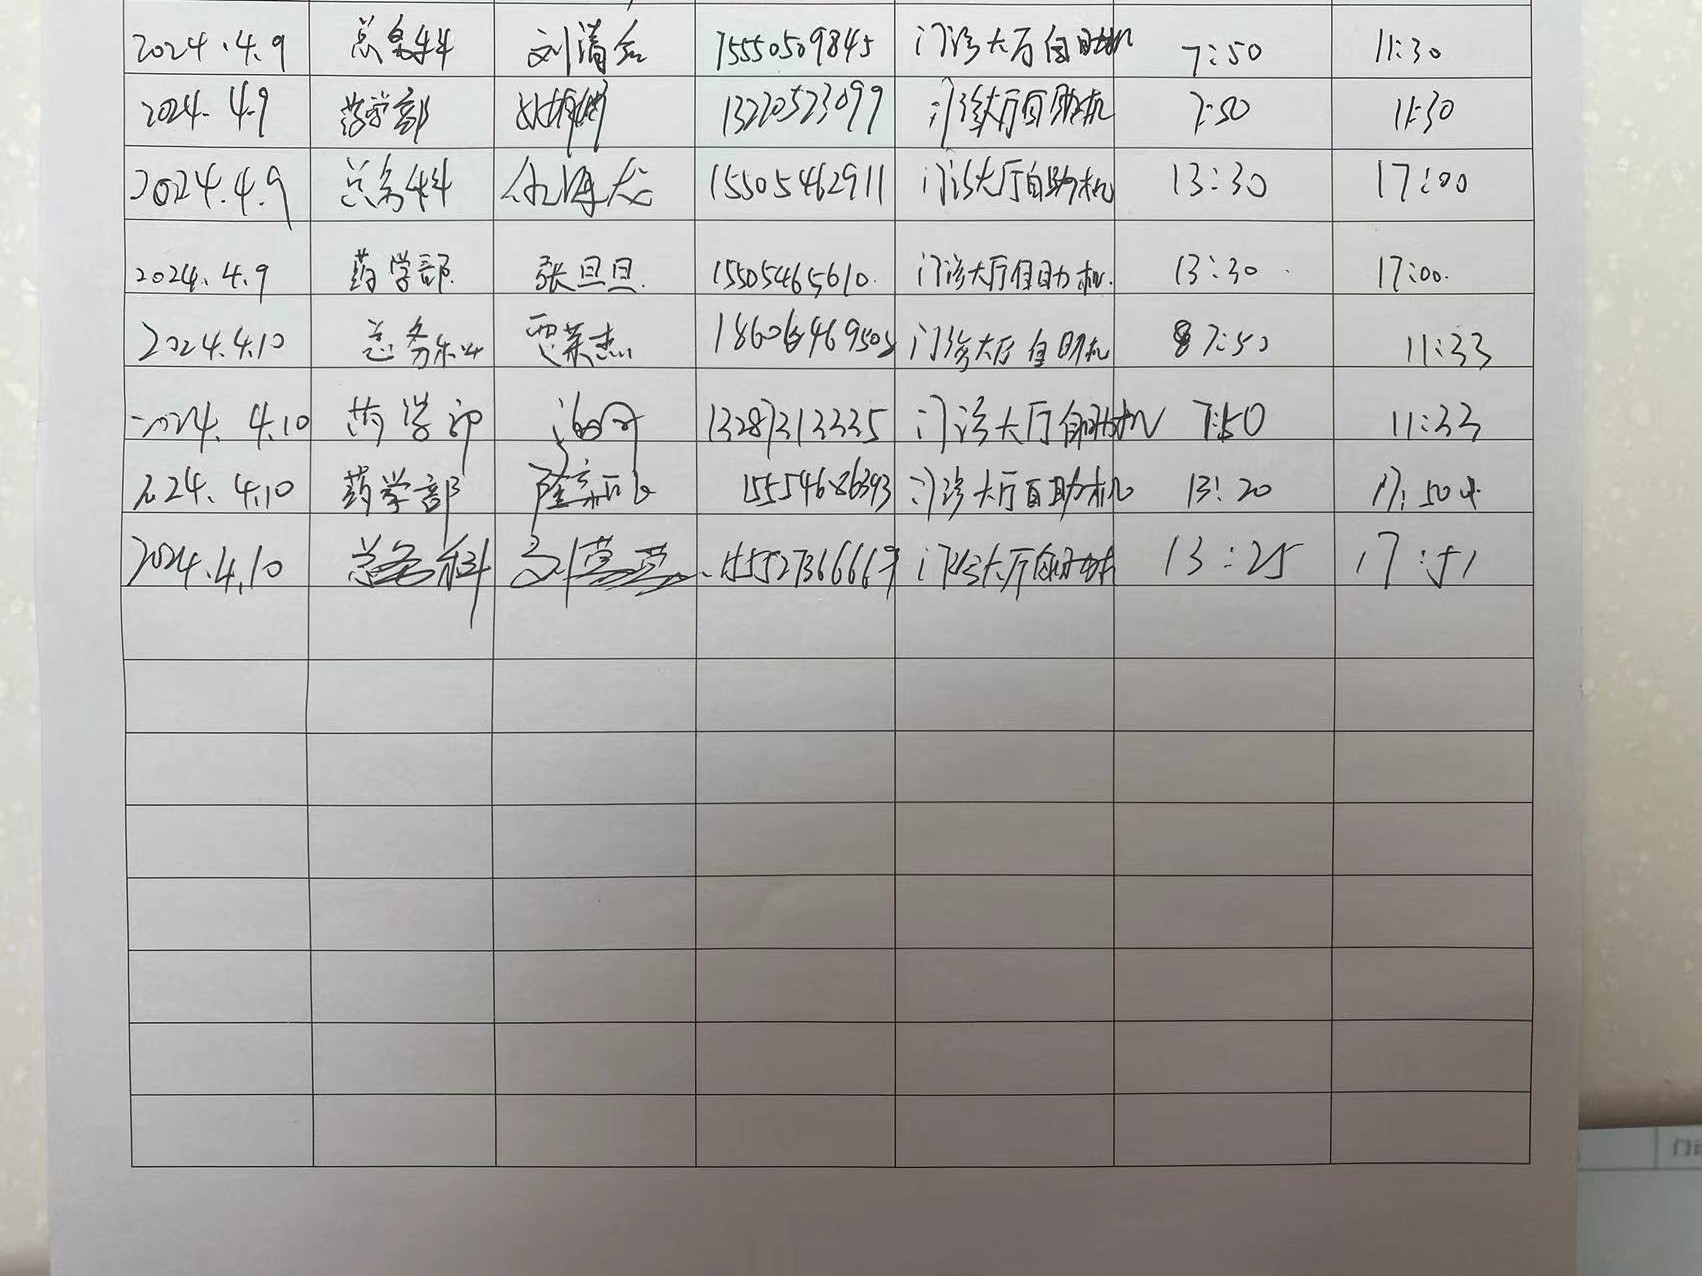 2024.4.9 总务科 刘清 15550509845 门诊大厅自助机 7:50 11:30
2024.4.9 药学部 13220523099 门诊大厅自助机 7:50 11:30
2024.4.9 总务科 15505462911 门诊大厅自助机 13:30 17:00
2024.4.9 药学部 张旦旦 15505465610 门诊大厅自助机 13:30 17:00
2024.4.10 总务科 贾荣杰 门诊大厅自助机 7:50 11:33
2024.4.10 药学部 13287313335 门诊大厅自助机 7:50 11:33
2024.4.10 药学部 15554686393 门诊大厅自助机 13:20 17:50
2024.4.10 总务科 刘 15552736666 门诊大厅自助机 13:25 17:51